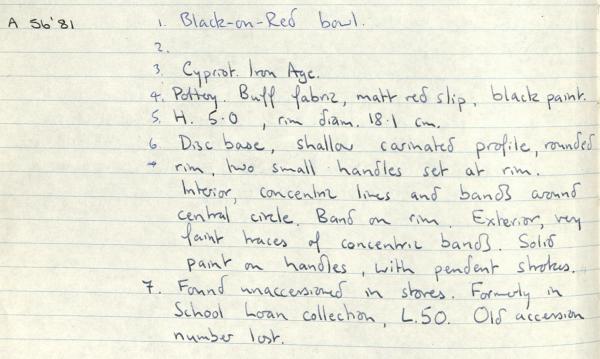 A 56'81
1. Black-on-Red bowl.
2.
3. Cypriot. Iron Age.
4. Pottery. Buff fabric, matt red slip, black paint.
5. H. 5.0 , rim diam. 18.1 cm.
6 Disc base, shallow carinated profile, rounded
rim, two small handles set at rim.
Interior, concentric lines and bands around
central circle. Band on rim. Exterior, very
faint traces of concentric bands. Solid
paint on handles, with pendent strokes.
7. Found unaccessioned in stores. Formerly in
School Loan collection, L.50. Old accession
number lost.